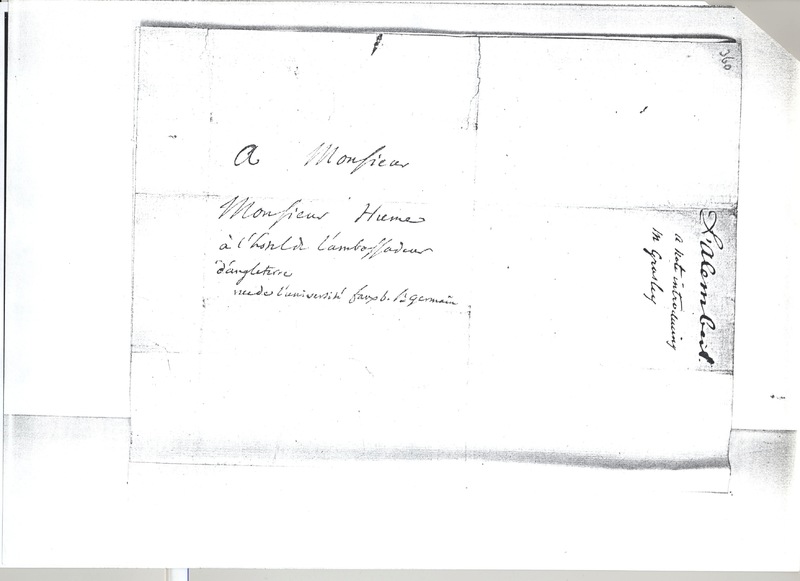 360
A Monsieur
Monsieur Hume
à l'hostel de l'ambassadeur
d'angleterre
rue de l'université fauxb. St germain
D'alembert.
a note introducing
Mr Grosley